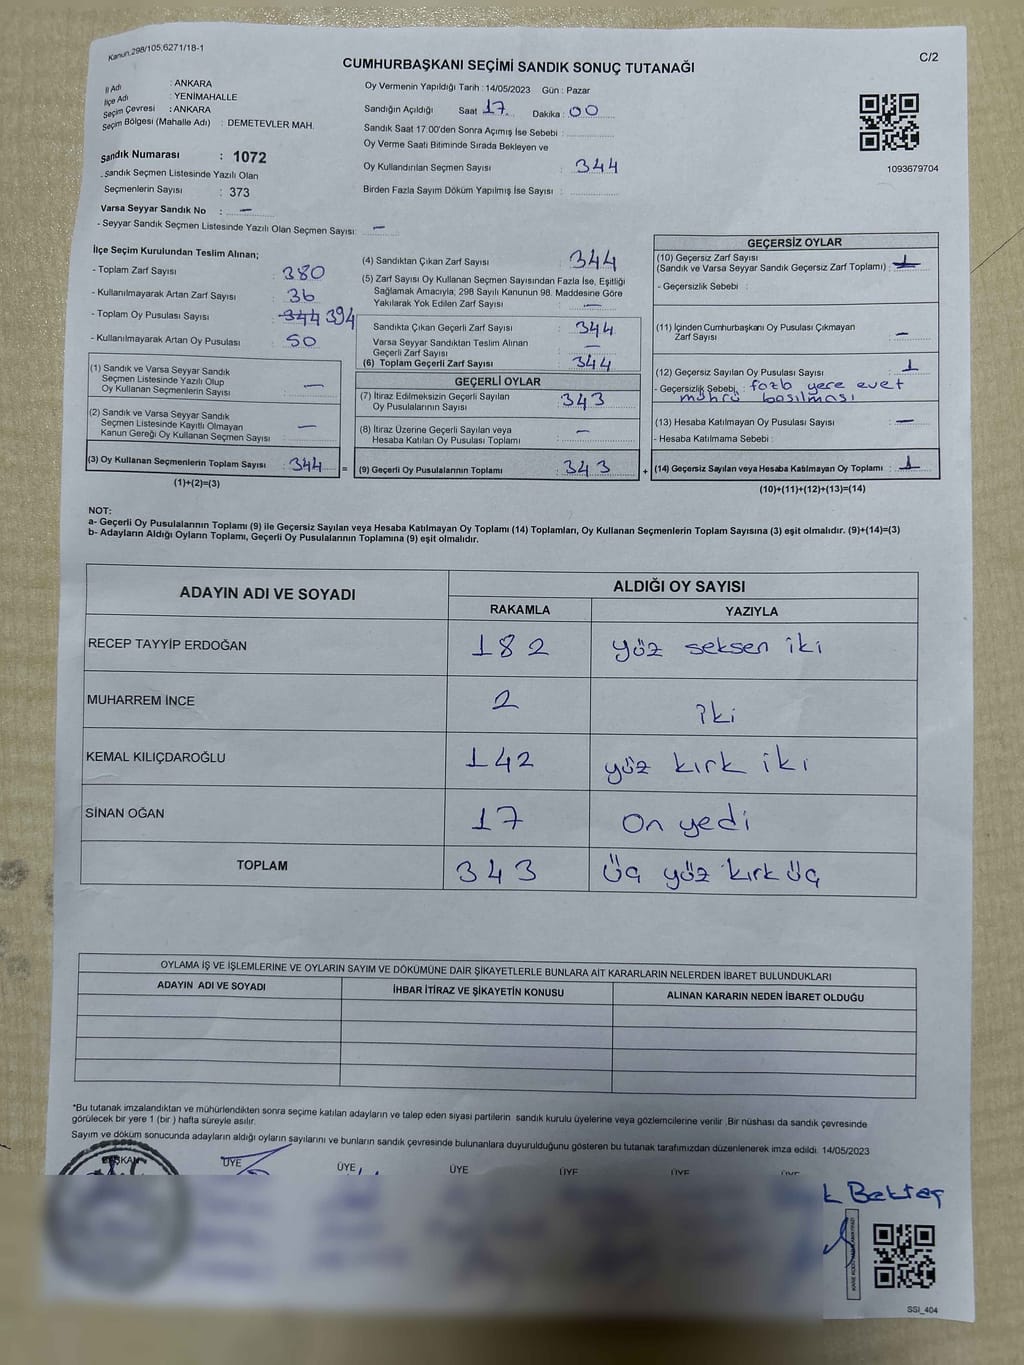 Kanun.298/105;6271/18-1
C/2
CUMHURBAŞKANI SEÇİMİ SANDIK SONUÇ TUTANAĞI
İl Adı : ANKARA
İlçe Adı : YENİMAHALLE
Seçim Çevresi : ANKARA
Seçim Bölgesi (Mahalle Adı) : DEMETEVLER MAH.
Sandık Numarası : 1072
Sandık Seçmen Listesinde Yazılı Olan
Seçmenlerin Sayısı : 373
Varsa Seyyar Sandık No : —
- Seyyar Sandık Seçmen Listesinde Yazılı Olan Seçmen Sayısı: —
Oy Vermenin Yapıldığı Tarih : 14/05/2023 Gün : Pazar
Sandığın Açıldığı Saat 17 Dakika : 00
Sandık Saat 17:00'den Sonra Açımış İse Sebebi :
Oy Verme Saati Bitiminde Sırada Bekleyen ve
Oy Kullandırılan Seçmen Sayısı : 344
Birden Fazla Sayım Döküm Yapılmış İse Sayısı :
1093679704
İlçe Seçim Kurulundan Teslim Alınan;
- Toplam Zarf Sayısı : 380
- Kullanılmayarak Artan Zarf Sayısı : 36
- Toplam Oy Pusulası Sayısı : 344 394
- Kullanılmayarak Artan Oy Pusulası : 50
(1) Sandık ve Varsa Seyyar Sandık
Seçmen Listesinde Yazılı Olup
Oy Kullanan Seçmenlerin Sayısı : —
(2) Sandık ve Varsa Seyyar Sandık
Seçmen Listesinde Kayıtlı Olmayan
Kanun Gereği Oy Kullanan Seçmen Sayısı : —
(3) Oy Kullanan Seçmenlerin Toplam Sayısı : 344 =
(1)+(2)=(3)
(4) Sandıktan Çıkan Zarf Sayısı : 344
(5) Zarf Sayısı Oy Kullanan Seçmen Sayısından Fazla İse, Eşitliği
Sağlamak Amacıyla; 298 Sayılı Kanunun 98. Maddesine Göre
Yakılarak Yok Edilen Zarf Sayısı : —
Sandıkta Çıkan Geçerli Zarf Sayısı : 344
Varsa Seyyar Sandıktan Teslim Alınan
Geçerli Zarf Sayısı : —
(6) Toplam Geçerli Zarf Sayısı : 344
GEÇERLİ OYLAR
(7) İtiraz Edilmeksizin Geçerli Sayılan
Oy Pusulalarının Sayısı : 343
(8) İtiraz Üzerine Geçerli Sayılan veya
Hesaba Katılan Oy Pusulası Toplamı : —
(9) Geçerli Oy Pusulalarının Toplamı : 343 +
GEÇERSİZ OYLAR
(10) Geçersiz Zarf Sayısı
(Sandık ve Varsa Seyyar Sandık Geçersiz Zarf Toplamı) : 1
- Geçersizlik Sebebi :
(11) İçinden Cumhurbaşkanı Oy Pusulası Çıkmayan
Zarf Sayısı : —
(12) Geçersiz Sayılan Oy Pusulası Sayısı : 1
- Geçersizlik Sebebi : fazla yere evet
mührü basılması
(13) Hesaba Katılmayan Oy Pusulası Sayısı : —
- Hesaba Katılmama Sebebi :
(14) Geçersiz Sayılan veya Hesaba Katılmayan Oy Toplamı : 1
(10)+(11)+(12)+(13)=(14)
NOT:
a- Geçerli Oy Pusulalarının Toplamı (9) ile Geçersiz Sayılan veya Hesaba Katılmayan Oy Toplamı (14) Toplamları, Oy Kullanan Seçmenlerin Toplam Sayısına (3) eşit olmalıdır. (9)+(14)=(3)
b- Adayların Aldığı Oyların Toplamı, Geçerli Oy Pusulalarının Toplamına (9) eşit olmalıdır.
ADAYIN ADI VE SOYADI ALDIĞI OY SAYISI
RAKAMLA YAZIYLA
RECEP TAYYİP ERDOĞAN 182 yüz seksen iki
MUHARREM İNCE 2 iki
KEMAL KILIÇDAROĞLU 142 yüz kırk iki
SİNAN OĞAN 17 On yedi
TOPLAM 343 üç yüz kırk üç
OYLAMA İŞ VE İŞLEMLERİNE VE OYLARIN SAYIM VE DÖKÜMÜNE DAİR ŞİKAYETLERLE BUNLARA AİT KARARLARIN NELERDEN İBARET BULUNDUKLARI
ADAYIN ADI VE SOYADI İHBAR İTİRAZ VE ŞİKAYETİN KONUSU ALINAN KARARIN NEDEN İBARET OLDUĞU
*Bu tutanak imzalandıktan ve mühürlendikten sonra seçime katılan adayların ve talep eden siyasi partilerin sandık kurulu üyelerine veya gözlemcilerine verilir. Bir nüshası da sandık çevresinde
görülecek bir yere 1 (bir) hafta süreyle asılır.
Sayım ve döküm sonucunda adayların aldığı oyların sayılarını ve bunların sandık çevresinde bulunanlara duyurulduğunu gösteren bu tutanak tarafımızdan düzenlenerek imza edildi. 14/05/2023
BAŞKAN ÜYE ÜYE ÜYE ÜYE ÜYE ÜYE
k Bektaş
SSI_404